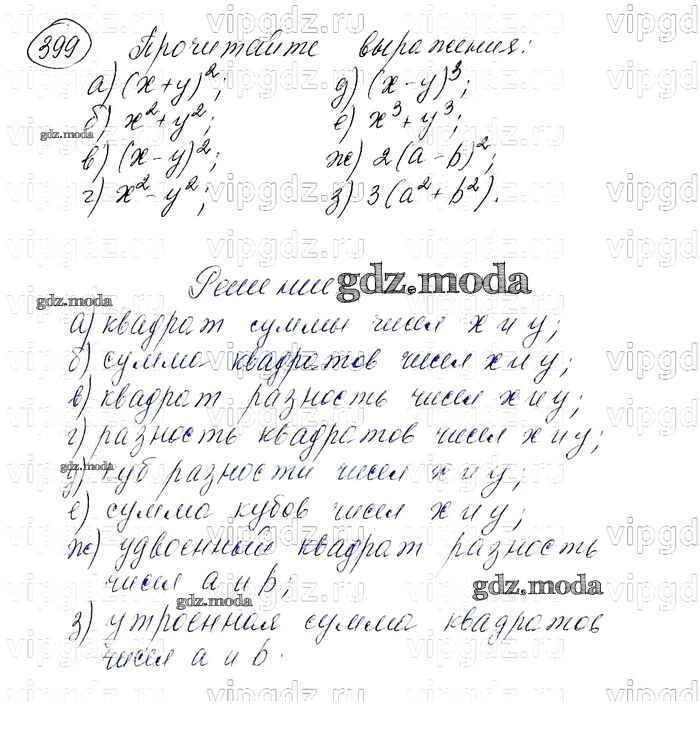 399 Прочитайте выражения:
а) (x+y)²; д) (x-y)³;
б) x²+y²; е) x³+y³;
gdz.moda
в) (x-y)²; ж) 2(a-b)²;
г) x²-y²; з) 3(a²+b²).
Решение
gdz.moda
gdz.moda
а) квадрат суммы чисел x и y;
б) сумма квадратов чисел x и y;
в) квадрат разность чисел x и y;
г) разность квадратов чисел x и y;
gdz.moda
д) куб разности чисел x и y;
е) сумма кубов чисел x и y;
ж) удвоенный квадрат разность
чисел a и b;
gdz.moda
gdz.moda
з) утроенная сумма квадратов
чисел a и b.
vipgdz.ru